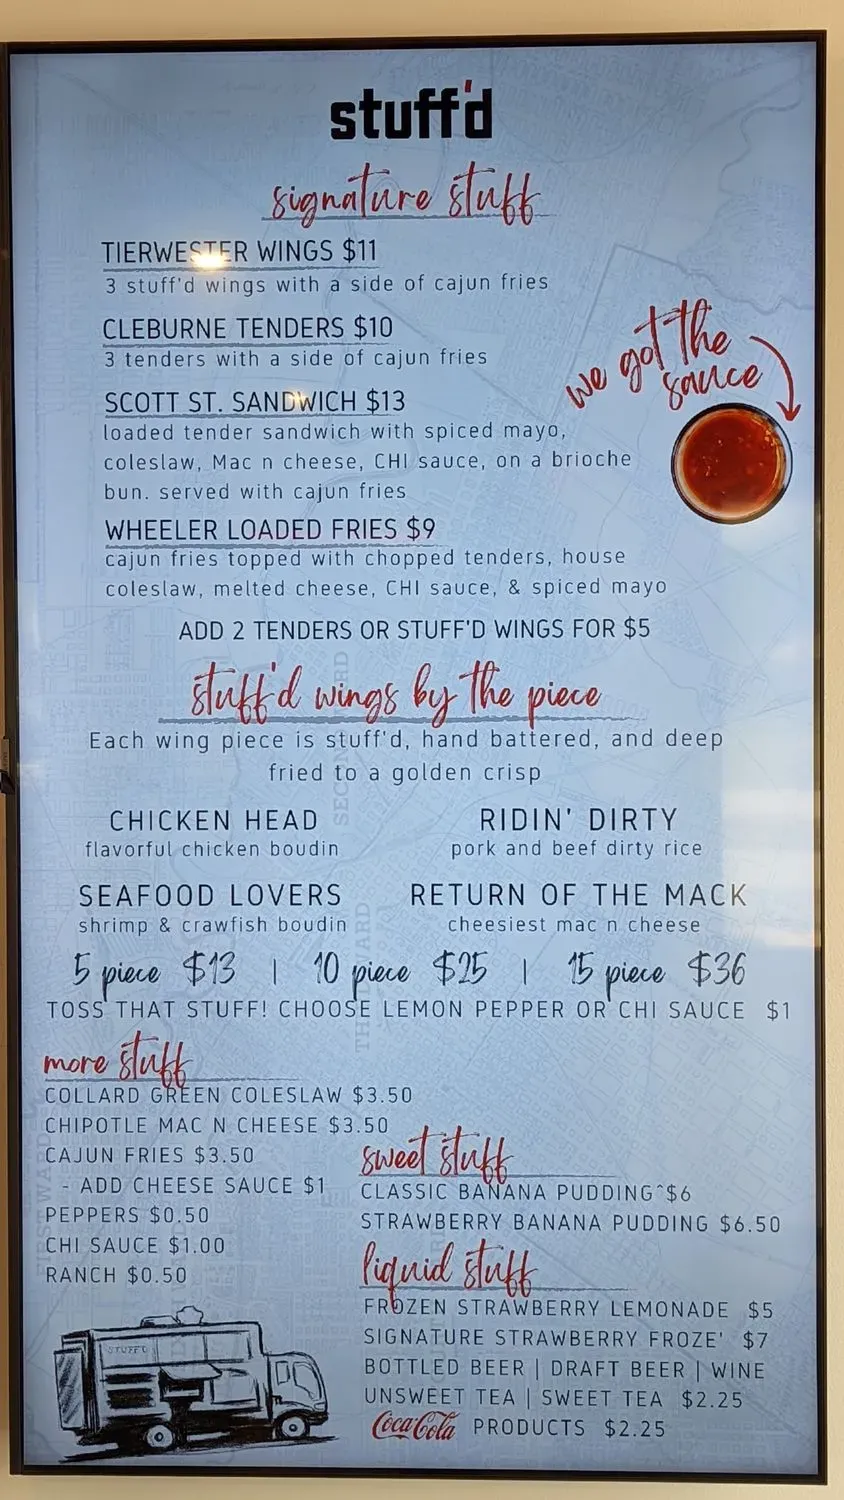 stuff'd
signature stuff
TIERWESTER WINGS $11
3 stuff'd wings with a side of cajun fries
CLEBURNE TENDERS $10
3 tenders with a side of cajun fries
we got the
sauce
SCOTT ST. SANDWICH $13
loaded tender sandwich with spiced mayo,
coleslaw, Mac n cheese, CHI sauce, on a brioche
bun. served with cajun fries
WHEELER LOADED FRIES $9
cajun fries topped with chopped tenders, house
coleslaw, melted cheese, CHI sauce, & spiced mayo
ADD 2 TENDERS OR STUFF'D WINGS FOR $5
stuff'd wings by the piece
Each wing piece is stuff'd, hand battered, and deep
fried to a golden crisp
CHICKEN HEAD
flavorful chicken boudin
RIDIN' DIRTY
pork and beef dirty rice
SEAFOOD LOVERS
shrimp & crawfish boudin
RETURN OF THE MACK
cheesiest mac n cheese
5 piece $13 | 10 piece $25 | 15 piece $36
TOSS THAT STUFF! CHOOSE LEMON PEPPER OR CHI SAUCE $1
more stuff
COLLARD GREEN COLESLAW $3.50
CHIPOTLE MAC N CHEESE $3.50
CAJUN FRIES $3.50
- ADD CHEESE SAUCE $1
PEPPERS $0.50
CHI SAUCE $1.00
RANCH $0.50
sweet stuff
CLASSIC BANANA PUDDING^$6
STRAWBERRY BANANA PUDDING $6.50
liquid stuff
FROZEN STRAWBERRY LEMONADE $5
SIGNATURE STRAWBERRY FROZE' $7
BOTTLED BEER | DRAFT BEER | WINE
UNSWEET TEA | SWEET TEA $2.25
Coca-Cola PRODUCTS $2.25
STUFF'D
SECOND WARD
THIRD WARD
FIRST WARD